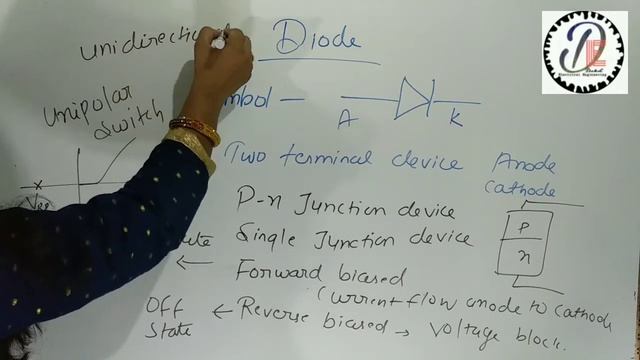 Diode
A K
Unipolar
Switch
Two terminal device Anode
Cathode
P-n Junction device
P
n
Single Junction device
Forward biased
Current flow anode to cathode
Off
State
← Reverse biased → Voltage block.
Electrical Engineering